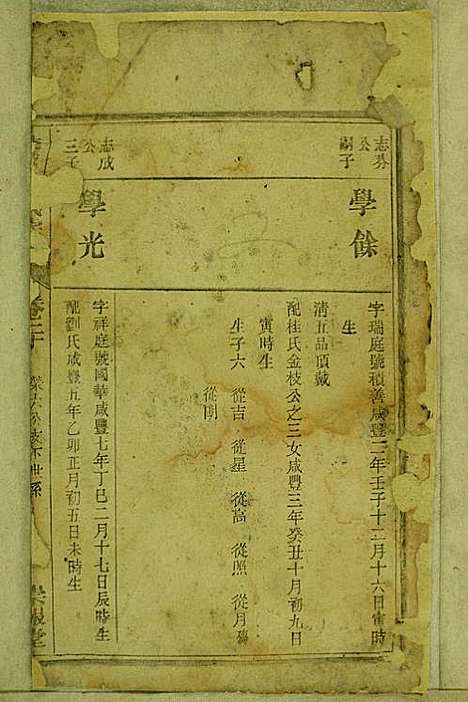 志
公
嗣子
學餘
字瑞庭號積善咸豐二年壬子十二月十六日寅時
生
清五品頂戴
配桂氏金枝公之三女咸豐三年癸丑十月初九日
寅時生
生子六 從吉 從星 從高 從照 從月
從明
志成
公
三子
學光
字祥庭號國華咸豐七年丁巳二月十七日辰時生
配劉氏咸豐五年乙卯正月初五日未時生
卷二十
公支下世系
堂